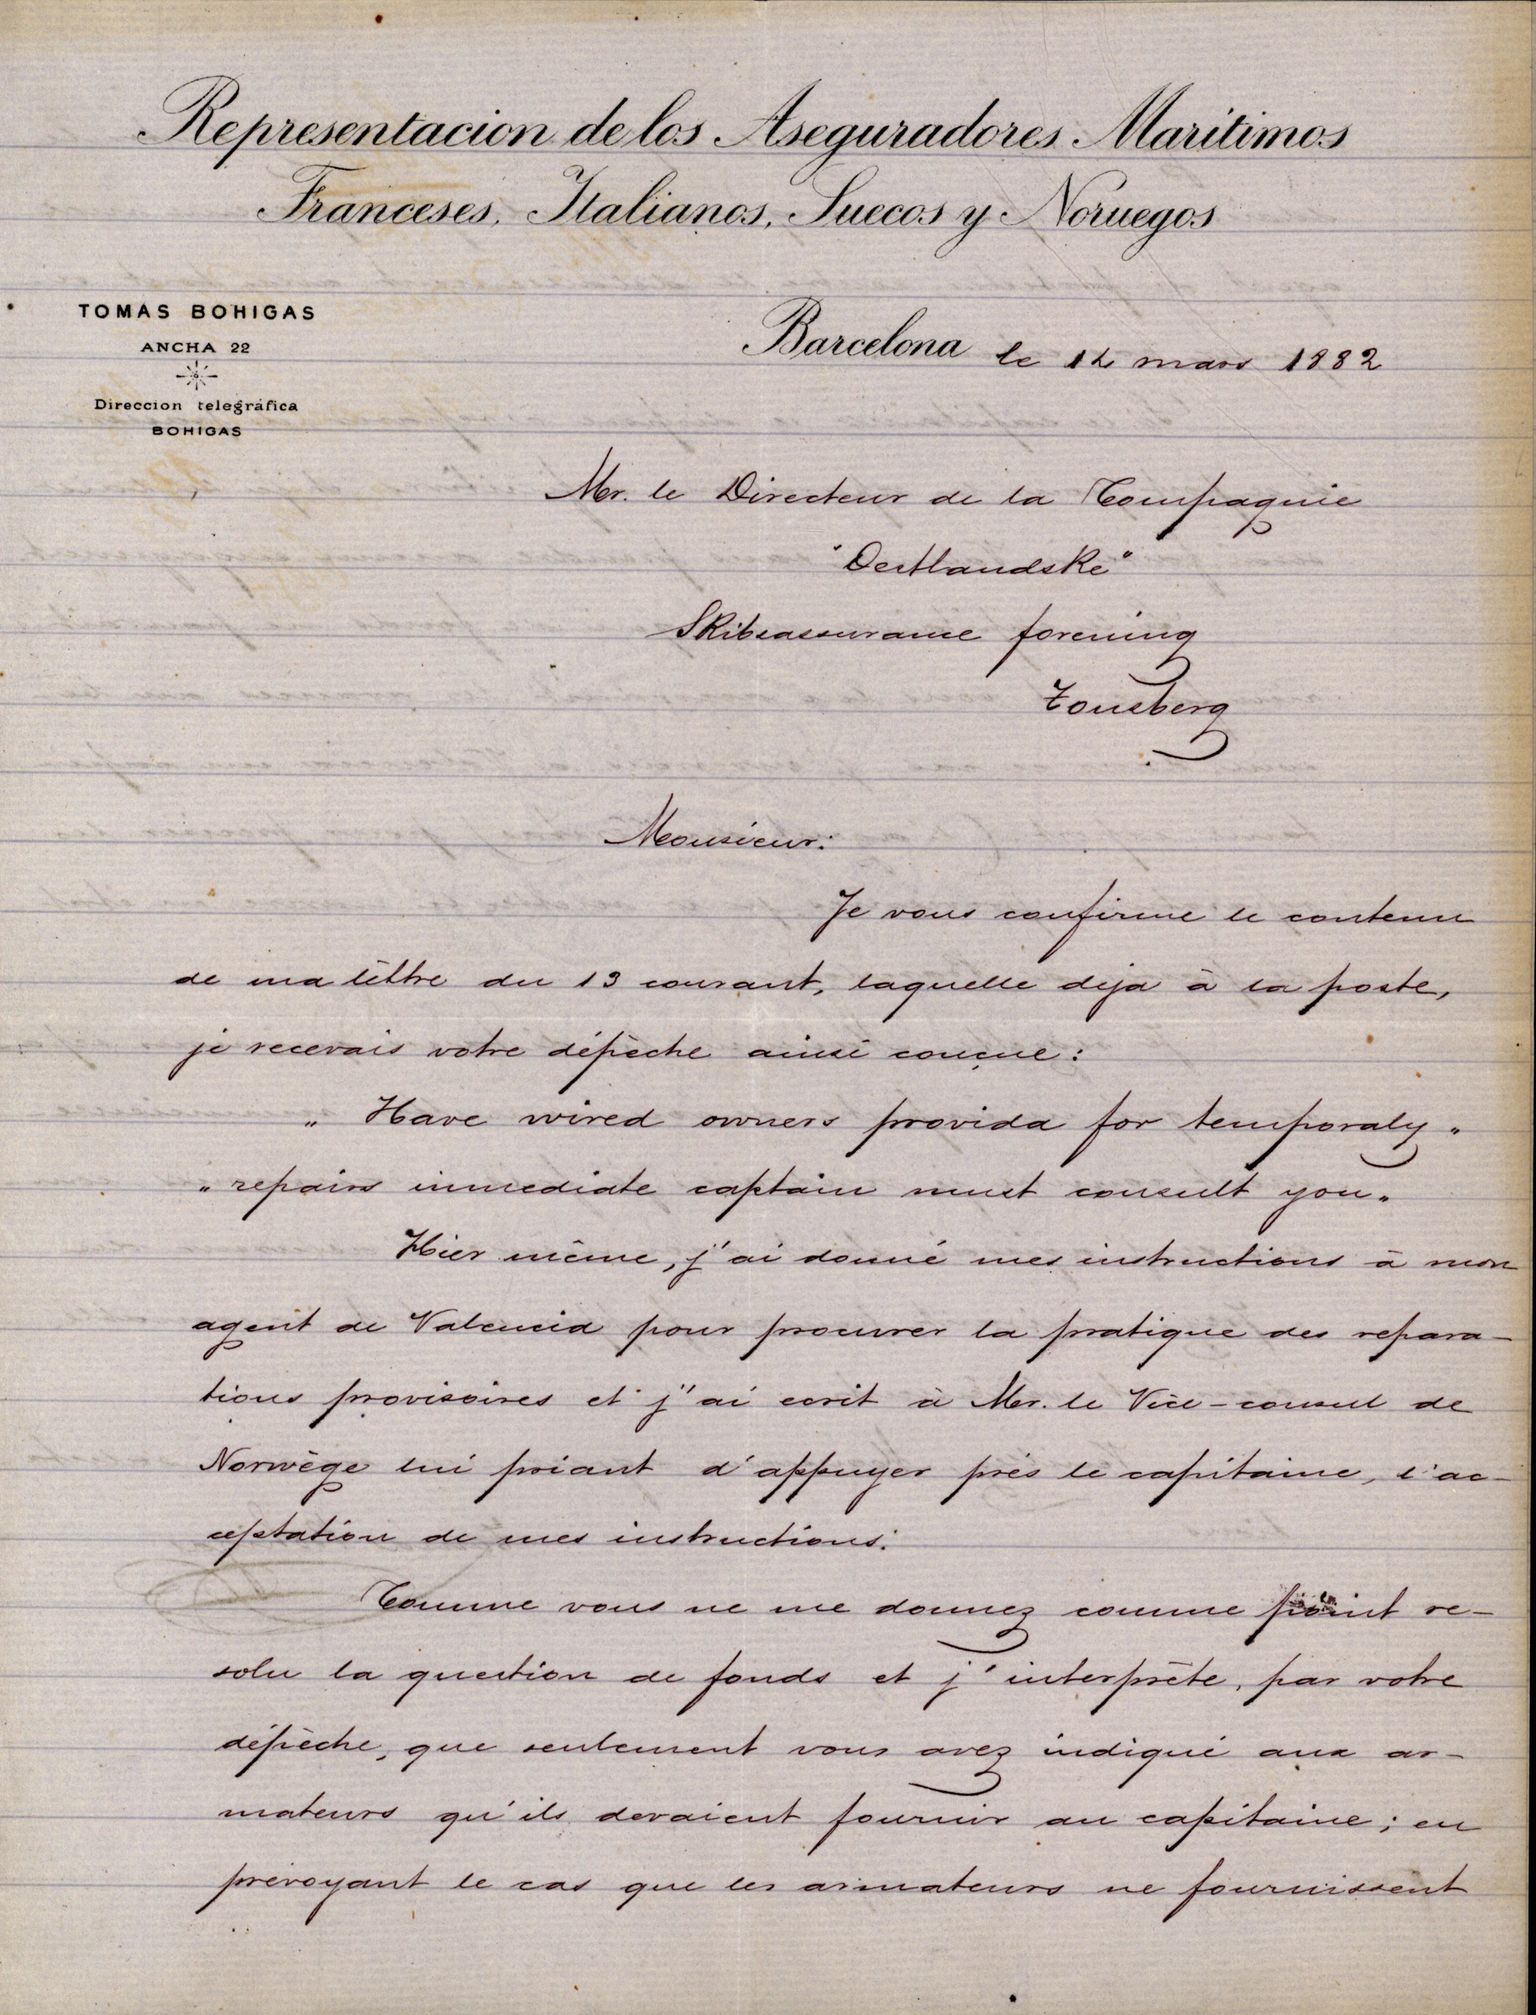 Representacion de los Aseguradores Maritimos
Franceses, Italianos, Suecos y Noruegos
TOMAS BOHIGAS
ANCHA 22
Direccion telegráfica
BOHIGAS
Barcelona le 14 mars 1882
Mr. le Directeur de la Compagnie
"Oestlandske"
Skibsassurance forening
Tonsberg
Monsieur:
Je vous confirme le contenu
de ma lèttre du 13 courant, laquelle deja à la poste,
je recevais votre dépèche ainsi conçue:
" Have wired owners provida for temporaly "
" repairs inmediate captain must consult you "
Hier même, j'ai donné mes instructions à mon
agent de Valencia pour procurer la pratique des repara-
tions provisoires et j'ai ecrit à Mr. le Vice-consul de
Norwège lui priant d'appuyer près le capitaine, l'ac-
ceptation de mes instructions.
Comme vous ne me donnez comme point re-
solu la question de fonds et j'interprète, par votre
dépèche, que seulement vous avez indiqué aux ar-
mateurs qu'ils devaient fournir au capitaine; en
prevoyant le cas que les armateurs ne fournissent